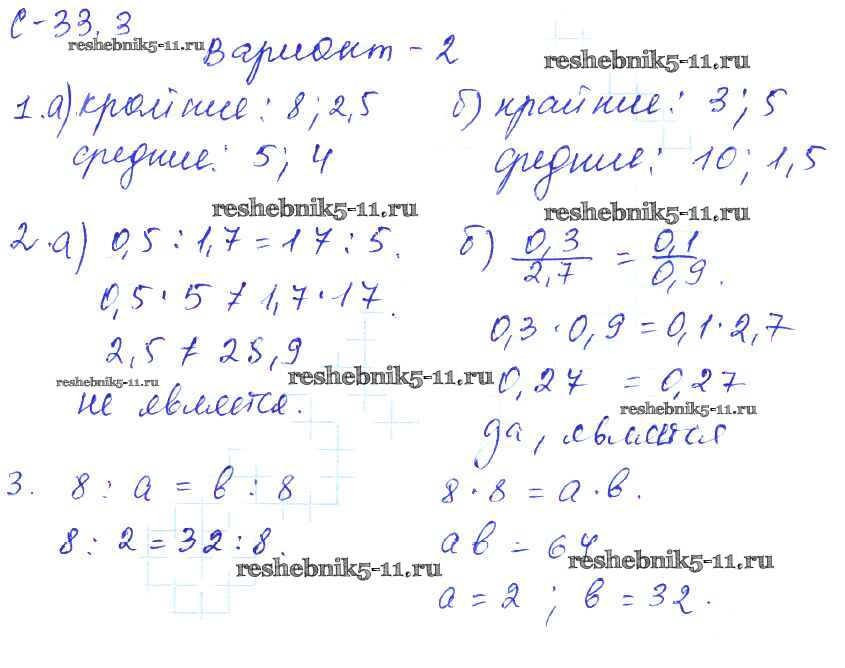 С-33.3
reshebnik5-11.ru
Вариант - 2
reshebnik5-11.ru
1. а) крайние: 8; 2,5
б) крайние: 3; 5
средние: 5; 4
средние: 10; 1,5
reshebnik5-11.ru
reshebnik5-11.ru
2. а) 0,5 : 1,7 = 17 : 5.
б) 0,3/2,7 = 0,1/0,9.
0,5 · 5 ≠ 1,7 · 17.
0,3 · 0,9 = 0,1 · 2,7
2,5 ≠ 28,9
reshebnik5-11.ru
reshebnik5-11.ru
0,27 = 0,27
не является.
reshebnik5-11.ru
да, является
3. 8 : а = в : 8
8 · 8 = а · в.
8 : 2 = 32 : 8.
ав = 64
reshebnik5-11.ru
reshebnik5-11.ru
а = 2 ; в = 32.